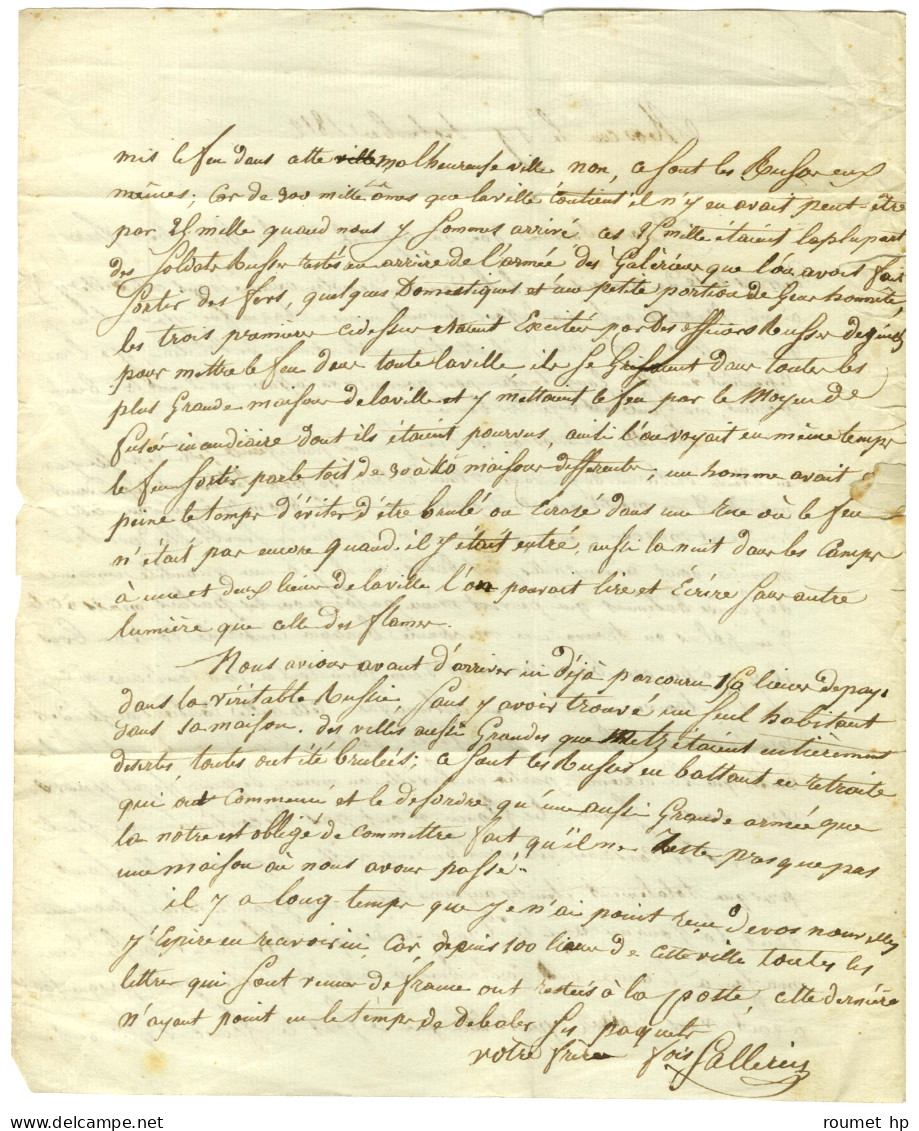 mis le feu dans cette malheureuse ville non, ce sont les Russes eux
mêmes; car de 300 mille âmes que la ville contient il n'y en avait peut-être
pas 25 mille quand nous y sommes arrivé ces 25 mille étaient la plupart
des Soldats Russes restés en arrière de l'armée des Galèriens que l'on avait fait
Sortir des fers, quelques Domestiques et une petite portion de Gens honnête,
les trois premiers cidessus etaient Excités par des officiers Russes
pour mettre le feu dans toute la ville ils se dans toutes les
plus Grande maisons de la ville et y mettaient le feu par le Moyen de
fusées incendiaire dont ils étaient pourvus, ainsi l'on voyait en même temps
le feu sortir par le toit de 30 à 40 maisons differentes; un homme avait
peine le temps d'éviter d'être brulé ou Ecrasé dans une Rue où le feu
n'était pas encore quand il y était entré, aussi la nuit dans les Camps
à une et deux lieues de la ville l'on pouvait lire et Ecrire sans autre
lumière que celle des flames.
Nous avions avant d'arriver ici déjà parcouru lieues de pays
dans la véritable Russie, Sans y avoir trouvé un seul habitant
dans sa maison. des villes aussi Grandes que Metz étaient entièrement
desertes toutes ont été brulées; ce sont les Russes en battant en retraite
qui ont Commencé et le desordre qu'une aussi Grande armée que
la notre est obligé de commettre fait qu'il ne Reste presque pas
une maison où nous avons passé.
il y a long-temps que je n'ai point reçu de vos nouvelles
j'Espère en recevoir ici, Car depuis 100 lieues de cette ville toutes les
lettres qui sont venues de france ont restées à la poste, cette dernière
n'ayant point eu le temps de debaler ses paquets
votre frère fois
roumet hp